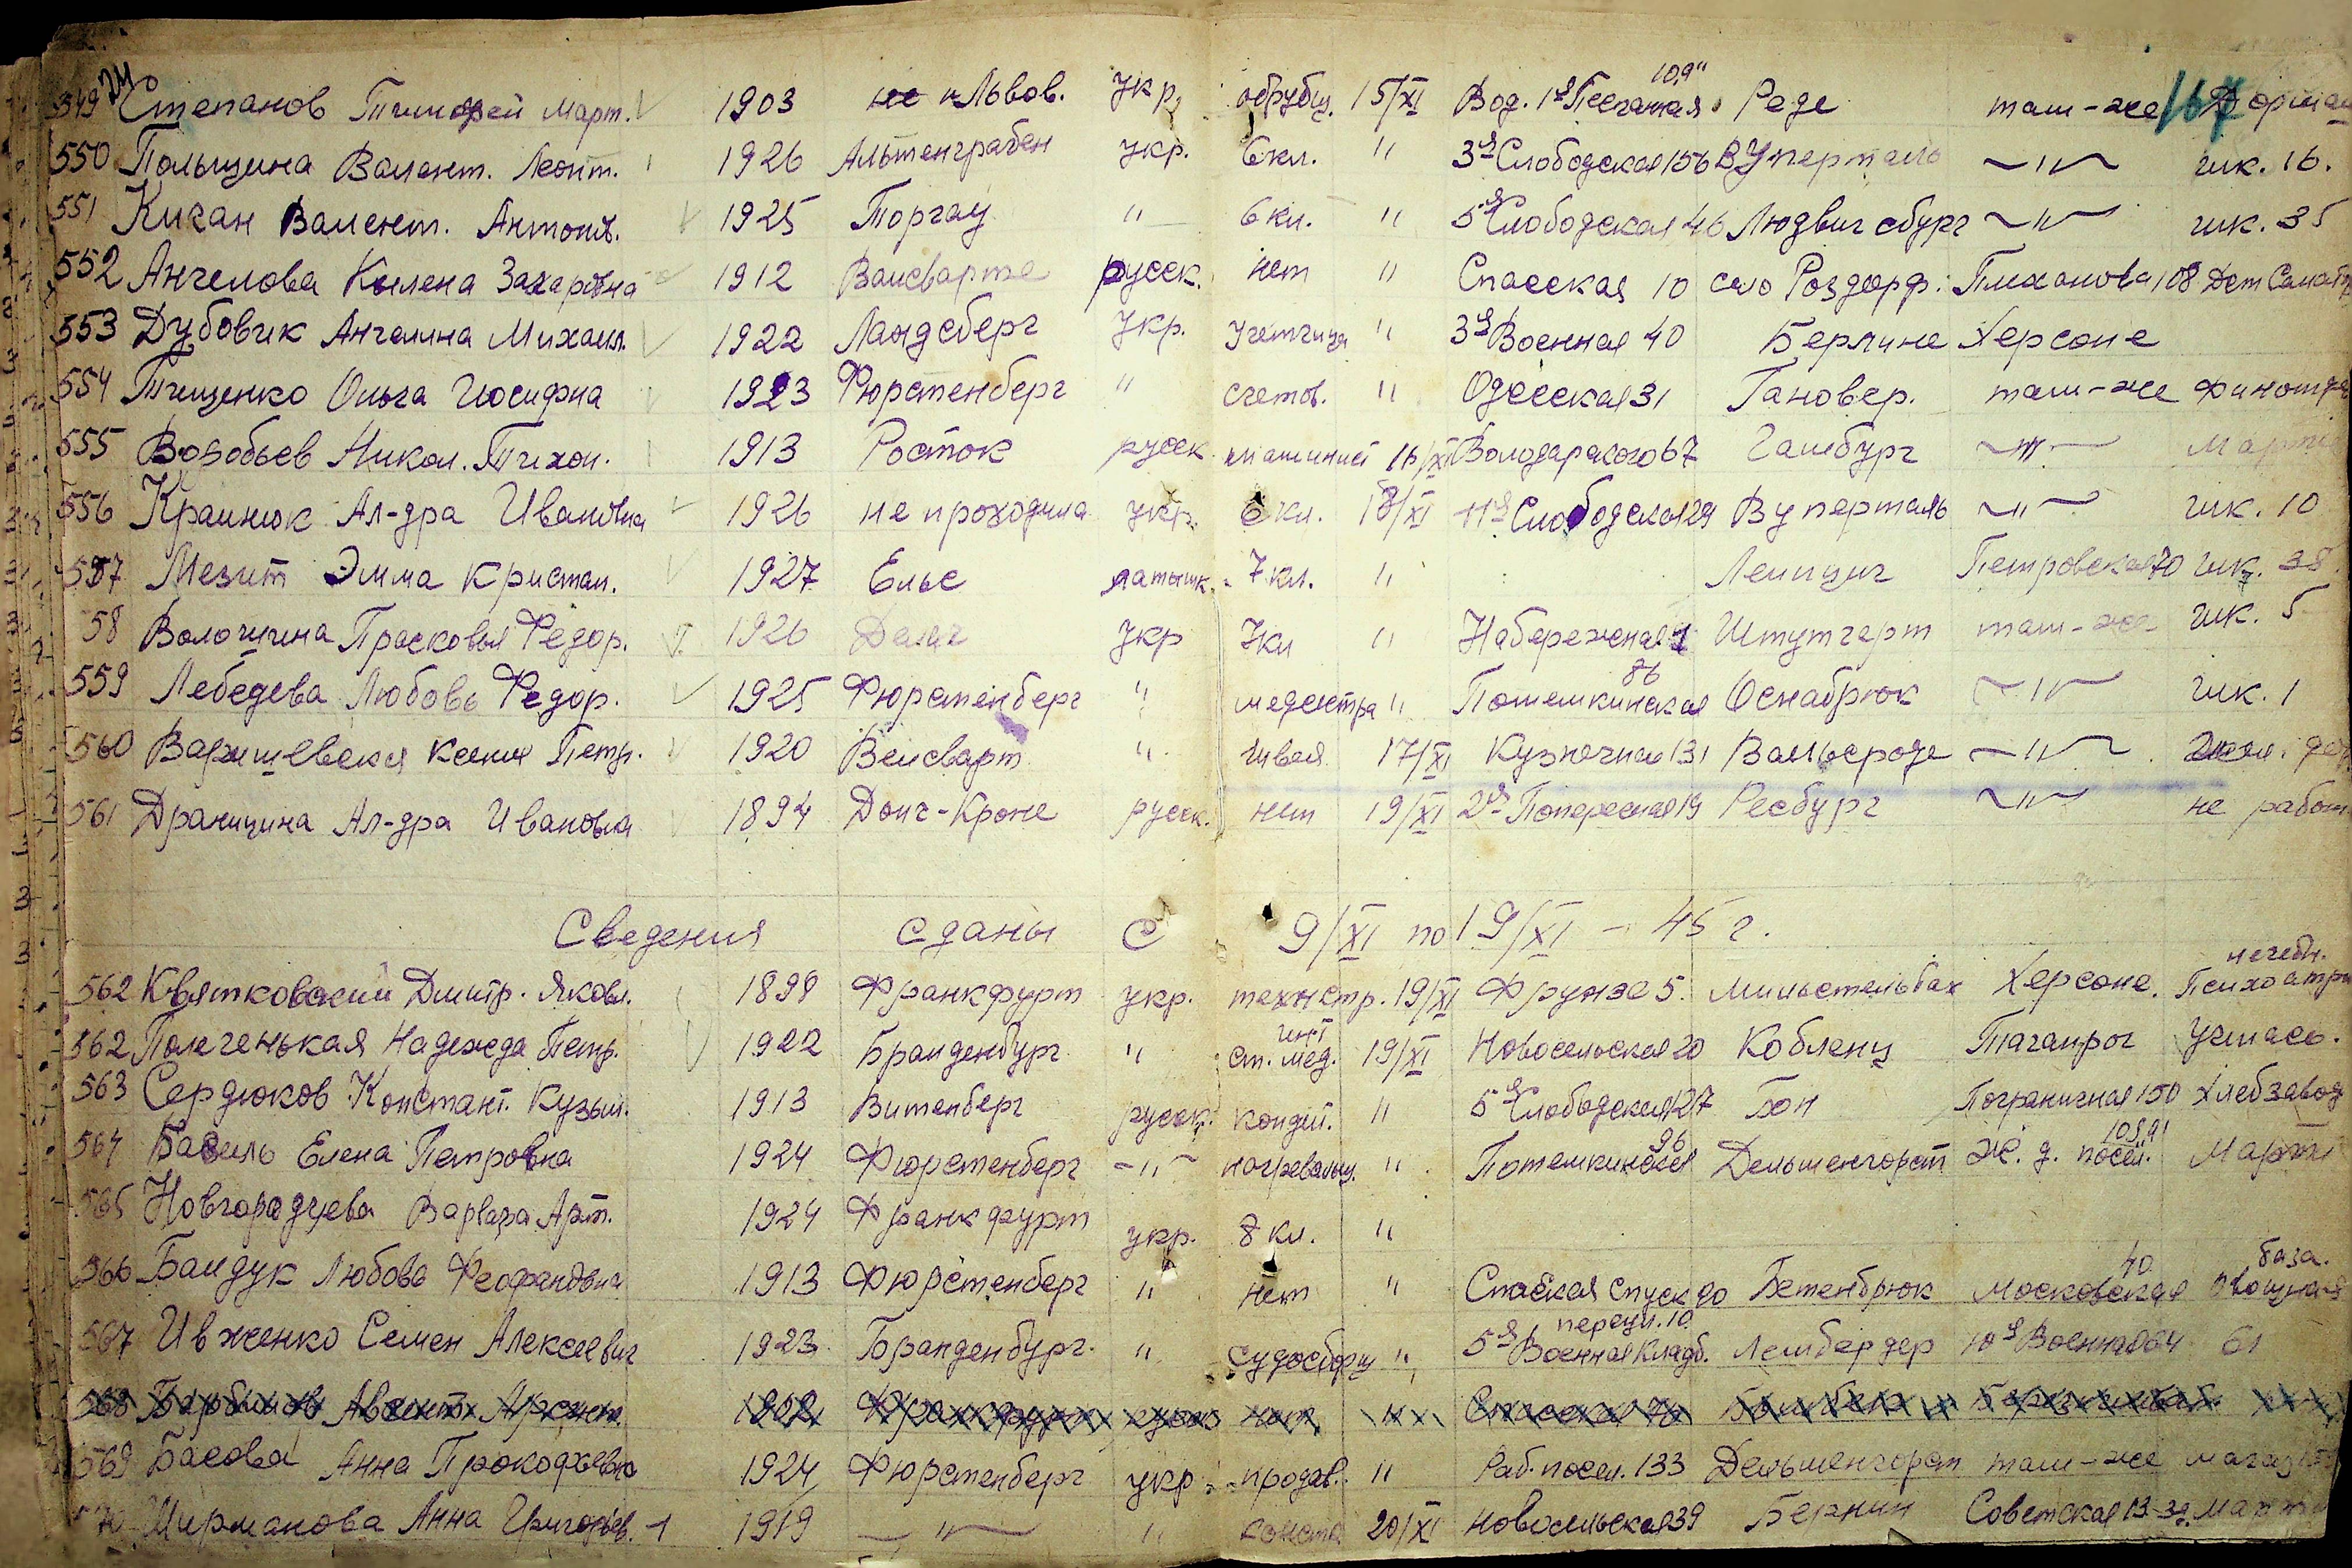 549 Степанов Тимофей Март. 1903 г Львов. укр. обрубщ. 15/XI Вод. 1я Песчаная 109" Реде там-же
167
550 Польщина Валент. Леонт. 1926 Альтенграбен укр. 6кл. " 3я Слободская 156 Вуперталь —"— шк. 16.
551 Кичан Валент. Антонов. 1925 Торгау " 6кл. " 5я Слободская 46 Людвигсбург —"— шк. 35
552 Ангелова Захаровна 1912 Вансварте русск. нет " Спасская 10 село Роздорф. Плеханова 108
553 Дубовик Ангелина Михаил. 1922 Ландсберг укр. учетчица " 3я Военная 40 Берлине Херсоне
554 Тищенко Ольга Иосифна 1923 Фюрстенберг " счетов. " Одесская 31 Гановер. там-же
555 Воробьев Никол. Тихон. 1913 Росток русск. машинист 16/XI Володарского 67 Гамбург —"— Марти
556 Крайнюк Ал-дра Ивановна 1926 не проходила укр. 6 кл. 18/XI 11я Слободская 29 Вуперталь —"— шк. 10
557 Мезит Эмма Кристап. 1927 Ельс латышк. 7 кл. " Лейпциг Петровская 70 шк. 38
58 Волощина Прасковья Федор. 1926 укр 7кл " Набережная 1 Штутгарт там-же шк. 5
559 Лебедева Любовь Федор. 1925 Фюрстенберг " медсестра " Потемкинская 86 Оснабрюк —"— шк. 1
560 Ксения Петр. 1920 Вансварт " швея 17/XI Кузнечная 131 Вальсроде —"—
561 Драницина Ал-дра Ивановна 1894 Дойч-Кроне русск. нет 19/XI 2я Поперечная 19 Ресбург —"— не работ
Сведения сданы с 9/XI по 19/XI – 45 г.
562 Квятковский Дмитр. Яковл. 1899 Франкфурт укр. техн стр. 19/XI Фрунзе 5. Херсоне. лечебн. Психоатри
562 Полегенькая Надежда Петр. 1922 Бранденбург " ст. мед. инт 19/XI Новосельская 20 Кобленц Таганрог учтась.
563 Сердюков Констант. Кузьм. 1913 Витенберг русск. кондит. " 5я Слободская 127 Бон Пограничная 150 Хлебзавод
564 Базиль Елена Петровна 1924 Фюрстенберг —"— нагревальщ. " Потемкинская 96 Дельменгорст Ж. д. посел. 109 Марти
565 Новгородцева Варвара Арт. 1924 Франкфурт укр. 8 кл. "
566 Бандук Любовь Феофановна 1913 Фюрстенберг " нет " Спасская спуск 20 Бетенбрюк Московская 40 база. Овощная
567 Ивженко Семен Алексеевич 1923 Бранденбург. " судосборщ " 5я Военная Кладб. переул. 10 10я Военная 64 61
568 1902 Франкфурт русск нет " Спасская
569 Басова Анна Прокофьевна 1924 Фюрстенберг укр. продав. " Раб. посел. 133 Дельменгорст там-же магаз
570 Ширманова Анна Григорьев. 1919 —"— " 20/XI Новосельская 39 Берлин Советская 13 Марти